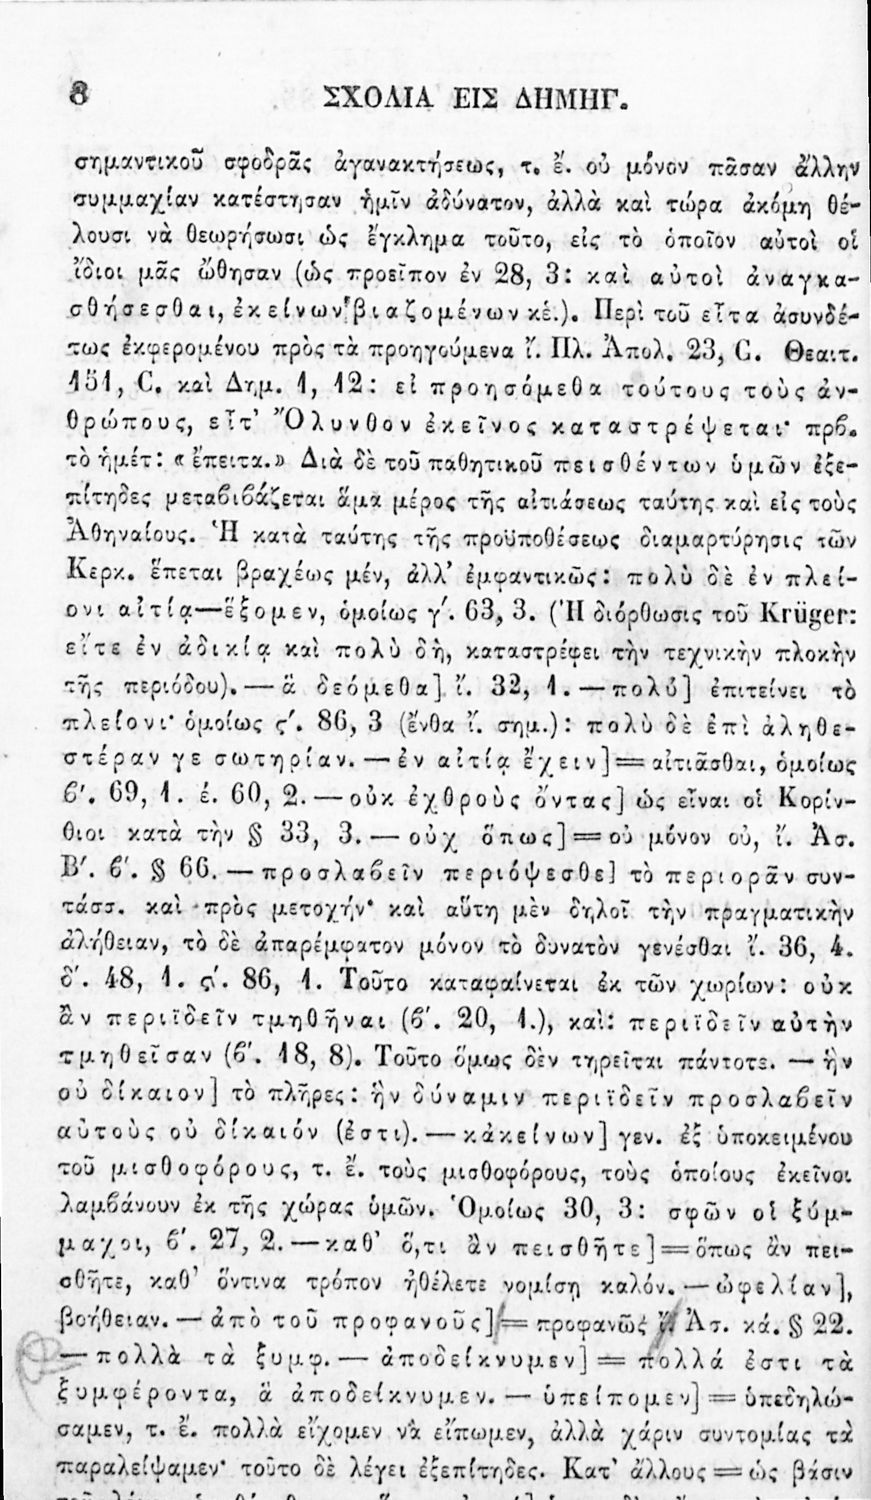 8 ΣΧΟΛΙΑ ΕΙΣ ΔΗΜΗΓ.
σημαντικοῦ σφοδρᾶς ἀγανακτήσεως, τ. ἔ. οὐ μόνον πᾶσαν ἄλλην
συμμαχίαν κατέστησαν ἡμῖν ἀδύνατον, ἀλλὰ καὶ τώρα ἀκόμη θέ-
λουσι νὰ θεωρήσωσι ὡς ἔγκλημα τοῦτο, εἰς τὸ ὁποῖον αὐτοὶ οἱ
ἴδιοι μᾶς ὤθησαν (ὡς προεῖπον ἐν 28, 3: καὶ αὐτοὶ ἀναγκα-
σθήσεσθαι, ἐκείνων βιαζομένων κἑ.). Περὶ τοῦ εἶτα ἀσυνδέ-
τως ἐκφερομένου πρὸς τὰ προηγούμενα ἴ. Πλ. Ἀπολ. 23, C. Θεαιτ.
151, C. καὶ Δημ. 1, 12: εἰ προησόμεθα τούτους τοὺς ἀν-
θρώπους, εἶτ' Ὄλυνθον ἐκεῖνος καταστρέψεται· πρϐ.
τὸ ἡμέτ: «ἔπειτα.» Διὰ δὲ τοῦ παθητικοῦ πεισθέντων ὑμῶν ἐξε-
πίτηδες μεταϐιϐάζεται ἅμα μέρος τῆς αἰτιάσεως ταύτης καὶ εἰς τοὺς
Ἀθηναίους. Ἡ κατὰ ταύτης τῆς προϋποθέσεως διαμαρτύρησις τῶν
Κερκ. ἕπεται βραχέως μέν, ἀλλ' ἐμφαντικῶς: πολὺ δὲ ἐν πλεί-
ονι αἰτίᾳ—ἕξομεν, ὁμοίως γ'. 63, 3. (Ἡ διόρθωσις τοῦ Krüger:
εἴτε ἐν ἀδικίᾳ καὶ πολὺ δὴ, καταστρέφει τὴν τεχνικὴν πλοκὴν
τῆς περιόδου).—ἃ δεόμεθα] ἴ. 32, 1.—πολύ] ἐπιτείνει τὸ
πλείονι· ὁμοίως ϛ'. 86, 3 (ἔνθα ἴ. σημ.): πολὺ δὲ ἐπὶ ἀληθε-
στέραν γε σωτηρίαν.—ἐν αἰτίᾳ ἔχειν]=αἰτιᾶσθαι, ὁμοίως
ϐ'. 69, 1. έ. 60, 2.—οὐκ ἐχθροὺς ὄντας] ὡς εἶναι οἱ Κορίν-
θιοι κατὰ τὴν § 33, 3.—οὐχ ὅπως]=οὐ μόνον οὐ, ἴ. Ἀσ.
Β'. ϐ'. § 66.—προσλαϐεῖν περιόψεσθε] τὸ περιορᾶν συν-
τάσσ. καὶ πρὸς μετοχήν· καὶ αὕτη μὲν δηλοῖ τὴν πραγματικὴν
ἀλήθειαν, τὸ δὲ ἀπαρέμφατον μόνον τὸ δυνατὸν γενέσθαι ἴ. 36, 4.
δ'. 48, 1. ϛ'. 86, 1. Τοῦτο καταφαίνεται ἐκ τῶν χωρίων: οὐκ
ἂν περιϊδεῖν τμηθῆναι (ϐ'. 20, 1.), καὶ: περιϊδεῖν αὐτὴν
τμηθεῖσαν (ϐ'. 18, 8). Τοῦτο ὅμως δὲν τηρεῖται πάντοτε.—ἣν
οὐ δίκαιον] τὸ πλῆρες: ἣν δύναμιν περιϊδεῖν προσλαϐεῖν
αὐτοὺς οὐ δίκαιόν (ἐστι).—κἀκείνων] γεν. ἐξ ὑποκειμένου
τοῦ μισθοφόρους, τ. ἔ. τοὺς μισθοφόρους, τοὺς ὁποίους ἐκεῖνοι
λαμϐάνουν ἐκ τῆς χώρας ὑμῶν. Ὁμοίως 30, 3: σφῶν οἱ ξύμ-
μαχοι, ϐ'. 27, 2.—καθ' ὅ,τι ἂν πεισθῆτε]=ὅπως ἂν πει-
σθῆτε, καθ' ὅντινα τρόπον ἠθέλετε νομίσῃ καλόν.—ὠφελίαν],
βοήθειαν.—ἀπὸ τοῦ προφανοῦς]=προφανῶς ἴ. Ἀσ. κά. § 22.
—πολλὰ τὰ ξυμφ.—ἀποδείκνυμεν]=πολλά ἐστι τὰ
ξυμφέροντα, ἃ ἀποδείκνυμεν.—ὑπείπομεν]=ὑπεδηλώ-
σαμεν, τ. ἔ. πολλὰ εἴχομεν νὰ εἴπωμεν, ἀλλὰ χάριν συντομίας τὰ
παραλείψαμεν· τοῦτο δὲ λέγει ἐξεπίτηδες. Κατ' ἄλλους=ὡς βάσιν